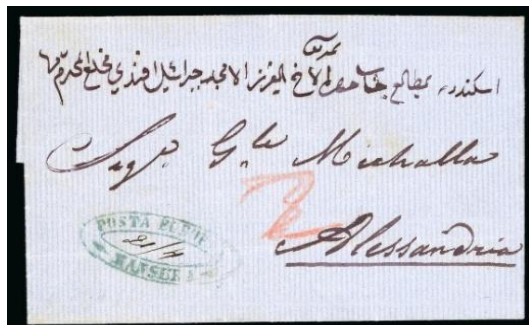 اسكندريه بمطالع جناب الاخ العزيز الامجد جبرائيل افندي مخلع المحترم
Sigr. Gle Michalla
2
Alessandria
POSTA EUROPEA
21/11
MANSURA